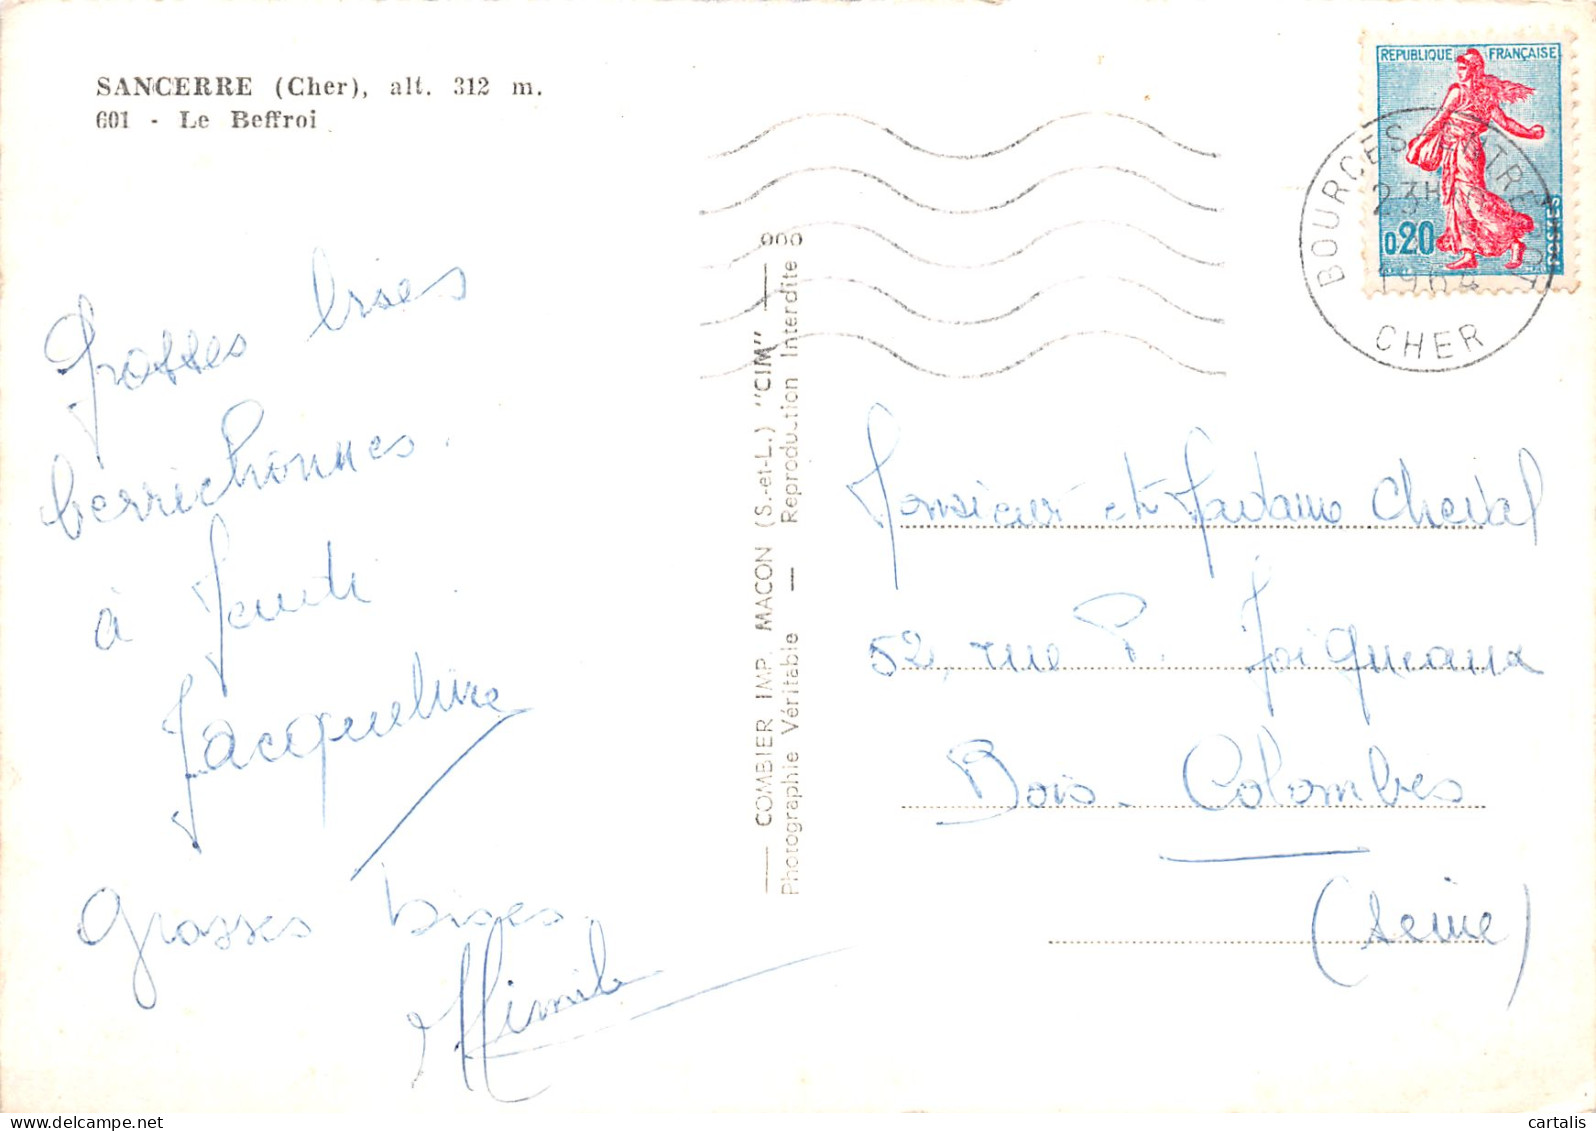 SANCERRE (Cher), alt. 312 m.
601 - Le Beffroi
REPUBLIQUE FRANÇAISE
0.20
POSTES
BOURGES
23H
1964
CHER
Grosses bises
berrichonnes.
à
Jacqueline
Grosses bises.
Mimile
COMBIER IMP. MACON (S.-et-L.) "CIM"
Photographie Véritable — Reproduction Interdite
Monsieur et Madame Cheval
52, rue P. Joigneaux
Bois-Colombes
(Seine)
cartalis www.delcampe.net